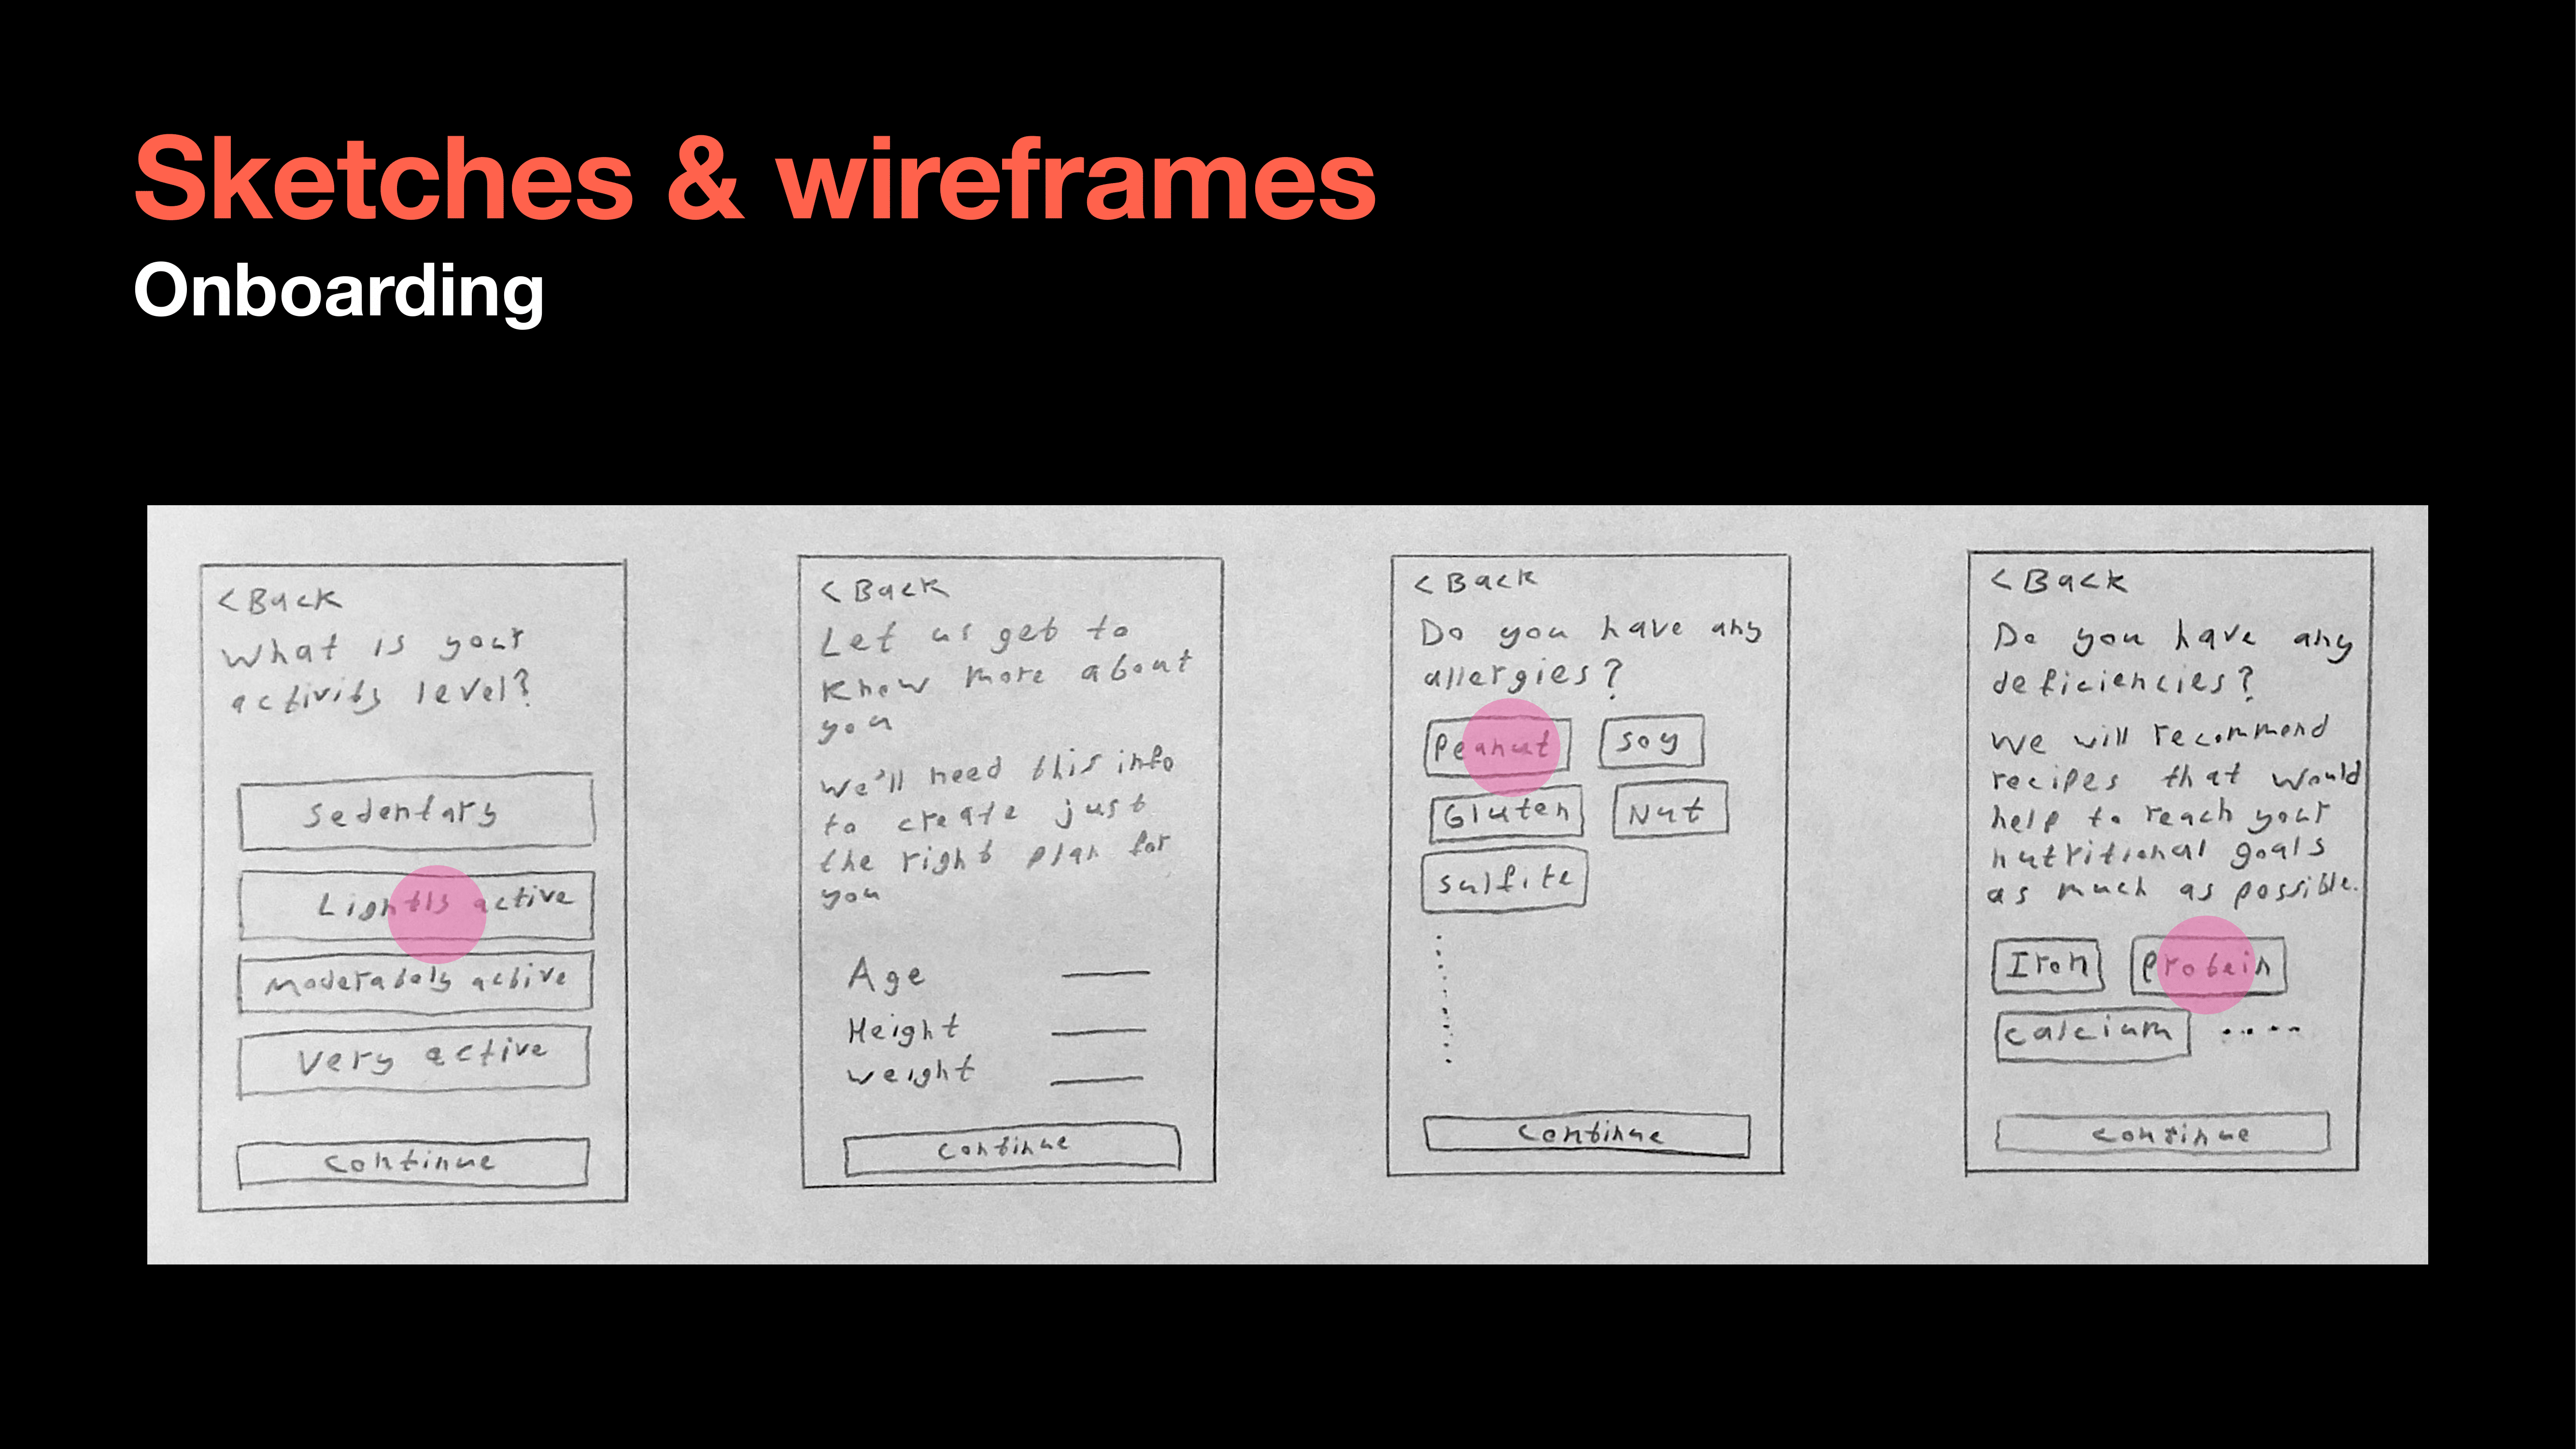 Sketches & wireframes
Onboarding
< Back
What is your
activity level?
Sedentary
Lightly active
Moderately active
Very active
Continue
< Back
Let us get to
know more about
you
We'll need this info
to create just
the right plan for
you
Age
Height
Weight
Continue
< Back
Do you have any
allergies?
Peanut
Soy
Gluten
Nut
Sulfite
Continue
< Back
Do you have any
deficiencies?
We will recommend
recipes that would
help to reach your
nutritional goals
as much as possible.
Iron
Protein
Calcium ....
Continue